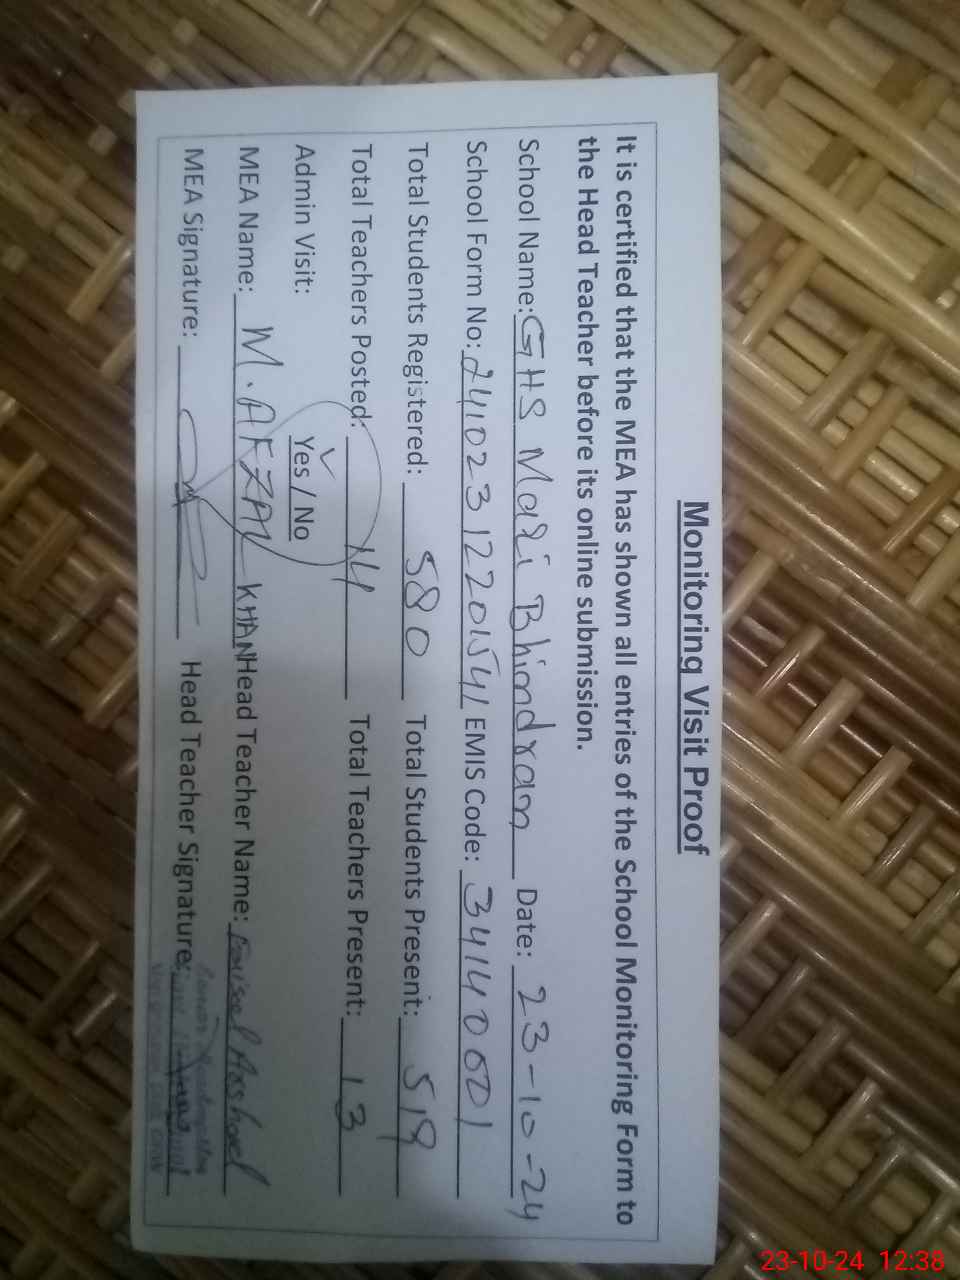 Monitoring Visit Proof
It is certified that the MEA has shown all entries of the School Monitoring Form to
the Head Teacher before its online submission.
School Name: GHS Mari Bhindran Date: 23-10-24
School Form No: 24102312201541 EMIS Code: 34140001
Total Students Registered: 580 Total Students Present: 519
Total Teachers Posted: 14 Total Teachers Present: 13
Admin Visit: Yes / No
MEA Name: M. AFZAL KHAN Head Teacher Name: Faisal Arshad
MEA Signature: Head Teacher Signature:
23-10-24 12:38